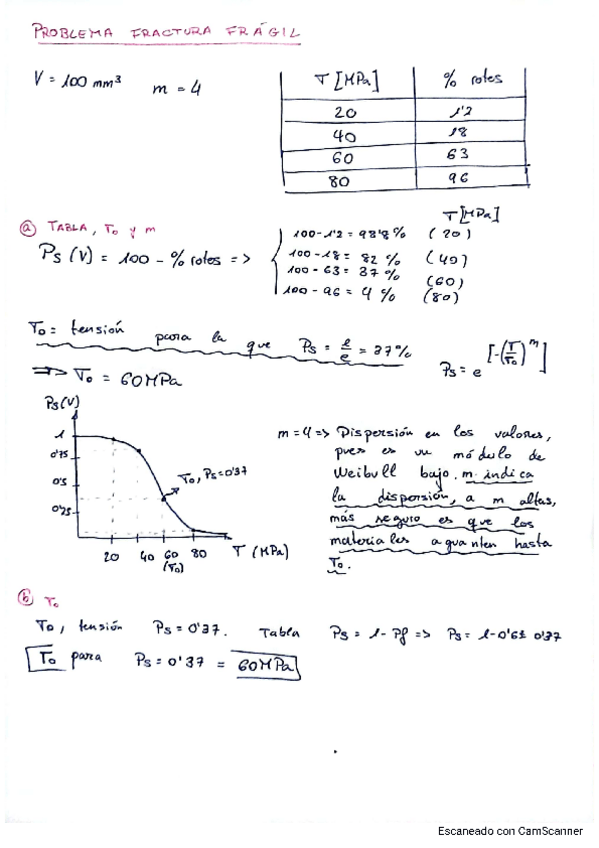 PROBLEMA FRACTURA FRÁGIL
V = 100 mm³ m = 4
T [MPa] % rotos
20 1'2
40 18
60 63
80 96
ⓐ TABLA, To y m
T [MPa]
Ps (V) = 100 - % rotos =>
100-1'2 = 98'8 % (20)
100-18 = 82 % (40)
100-63 = 37 % (60)
100-96 = 4 % (80)
To = tensión para la que Ps = 1/e = 37%
Ps = e^[-(T/To)^m]
=> To = 60 MPa
Ps(V)
1
0'75
0'5
0'25
To, Ps=0'37
20 40 60 80 T (MPa)
(To)
m = 4 => Dispersión en los valores,
pues es un módulo de
Weibull bajo. m indica
la dispersión, a m altas,
más seguro es que los
materiales aguanten hasta
To.
ⓑ To
To, tensión Ps = 0'37. Tabla Ps = 1 - Pf => Ps = 1-0'61 0'37
To para Ps = 0'37 = 60MPa
Escaneado con CamScanner